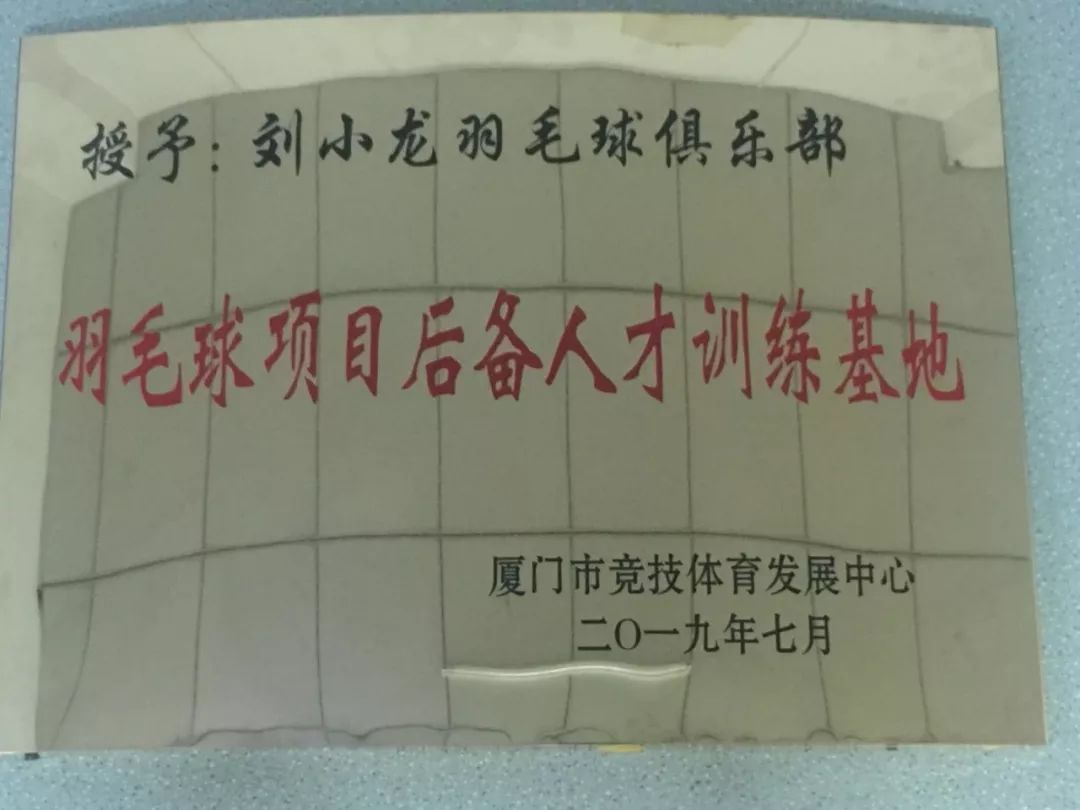 授予：刘小龙羽毛球俱乐部
羽毛球项目后备人才训练基地
厦门市竞技体育发展中心
二〇一九年七月